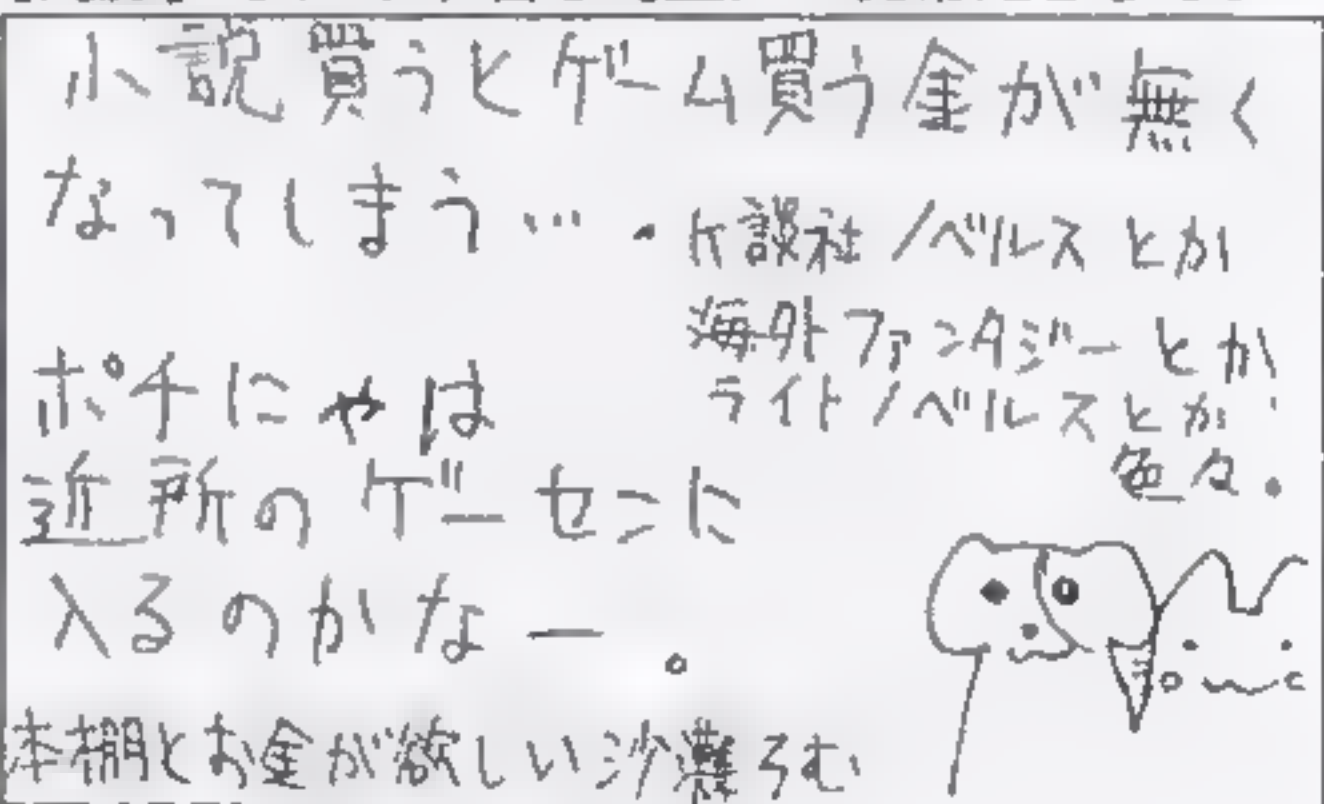 小説買うとゲーム買う金が無く
なってしまう….
ケ談社ノベルスとか
海外ファンタジーとか
ライトノベルスとか
色々.
ポチにゃは
近所のゲーセンに
入るのかなー。
本棚とお金が欲しい沙灘ろむ